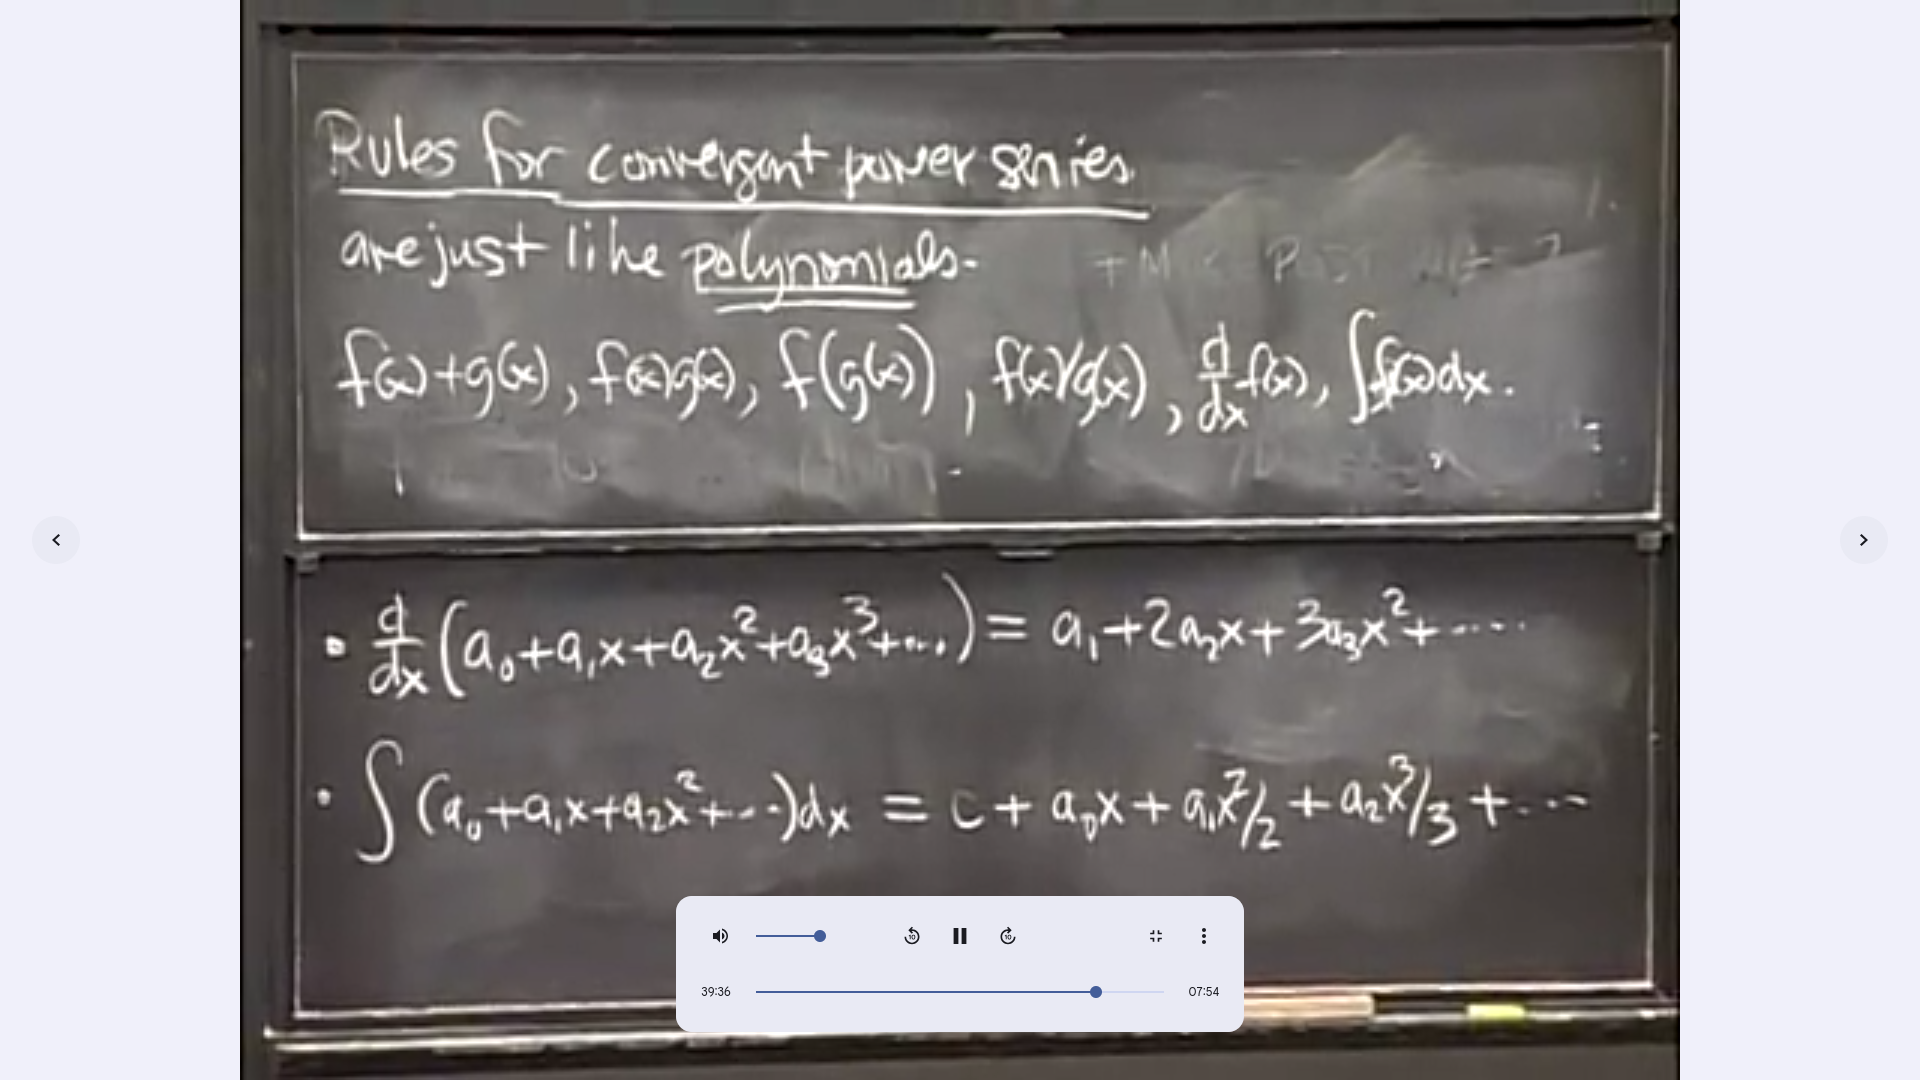 Rules for convergent power series
are just like polynomials.
f(x)+g(x), f(x)g(x), f(g(x)), f(x)/g(x), d/dx f(x), ∫f(x)dx.
• d/dx (a₀+a₁x+a₂x²+a₃x³+...) = a₁+2a₂x+3a₃x²+....
• ∫(a₀+a₁x+a₂x²+...)dx = c + a₀x+a₁x²/2+a₂x³/3+...
10 10
39:36 07:54